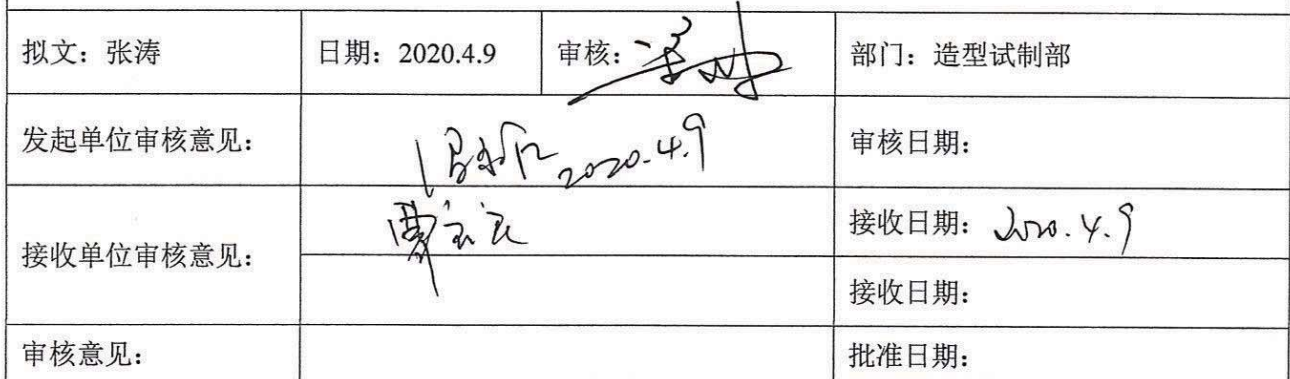 拟文：张涛 日期：2020.4.9 审核： 部门：造型试制部
发起单位审核意见： 2020.4.9 审核日期：
接收单位审核意见： 接收日期：2020.4.9
接收日期：
审核意见： 批准日期：